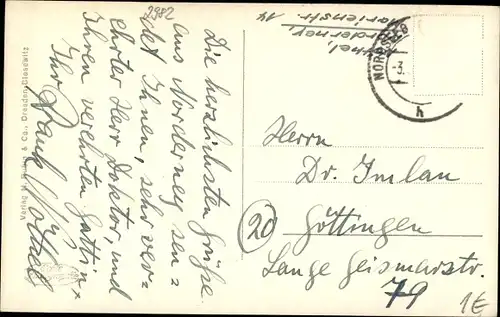 2982
Die herzlichsten Grüße
aus Norderney sen=
det Ihnen, sehr ver-
ehrter Herr Doktor, und
Ihren verehrten Gattin
Ihr
Frank Nöthel
Verlag & Co., Dresden-Gleiewitz
Norderney,
Marienstr. 14
NORDSEEB
-3.
h
Herrn
Dr. Imlau
(20) Göttingen
Lange Geismarstr.
79
1€